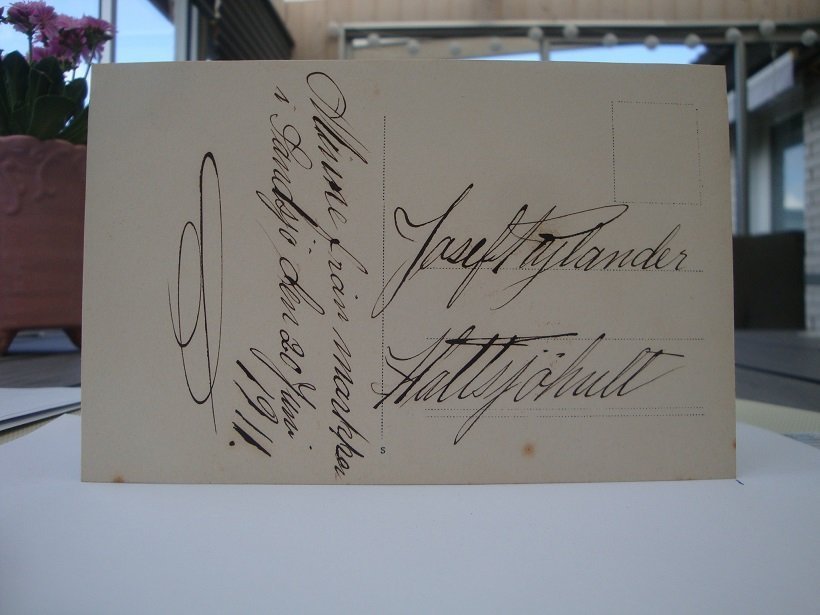 Minne från markna
i Sandsjö den 20 Juni
1911.
Josef Hylander
Hattsjöhult
S